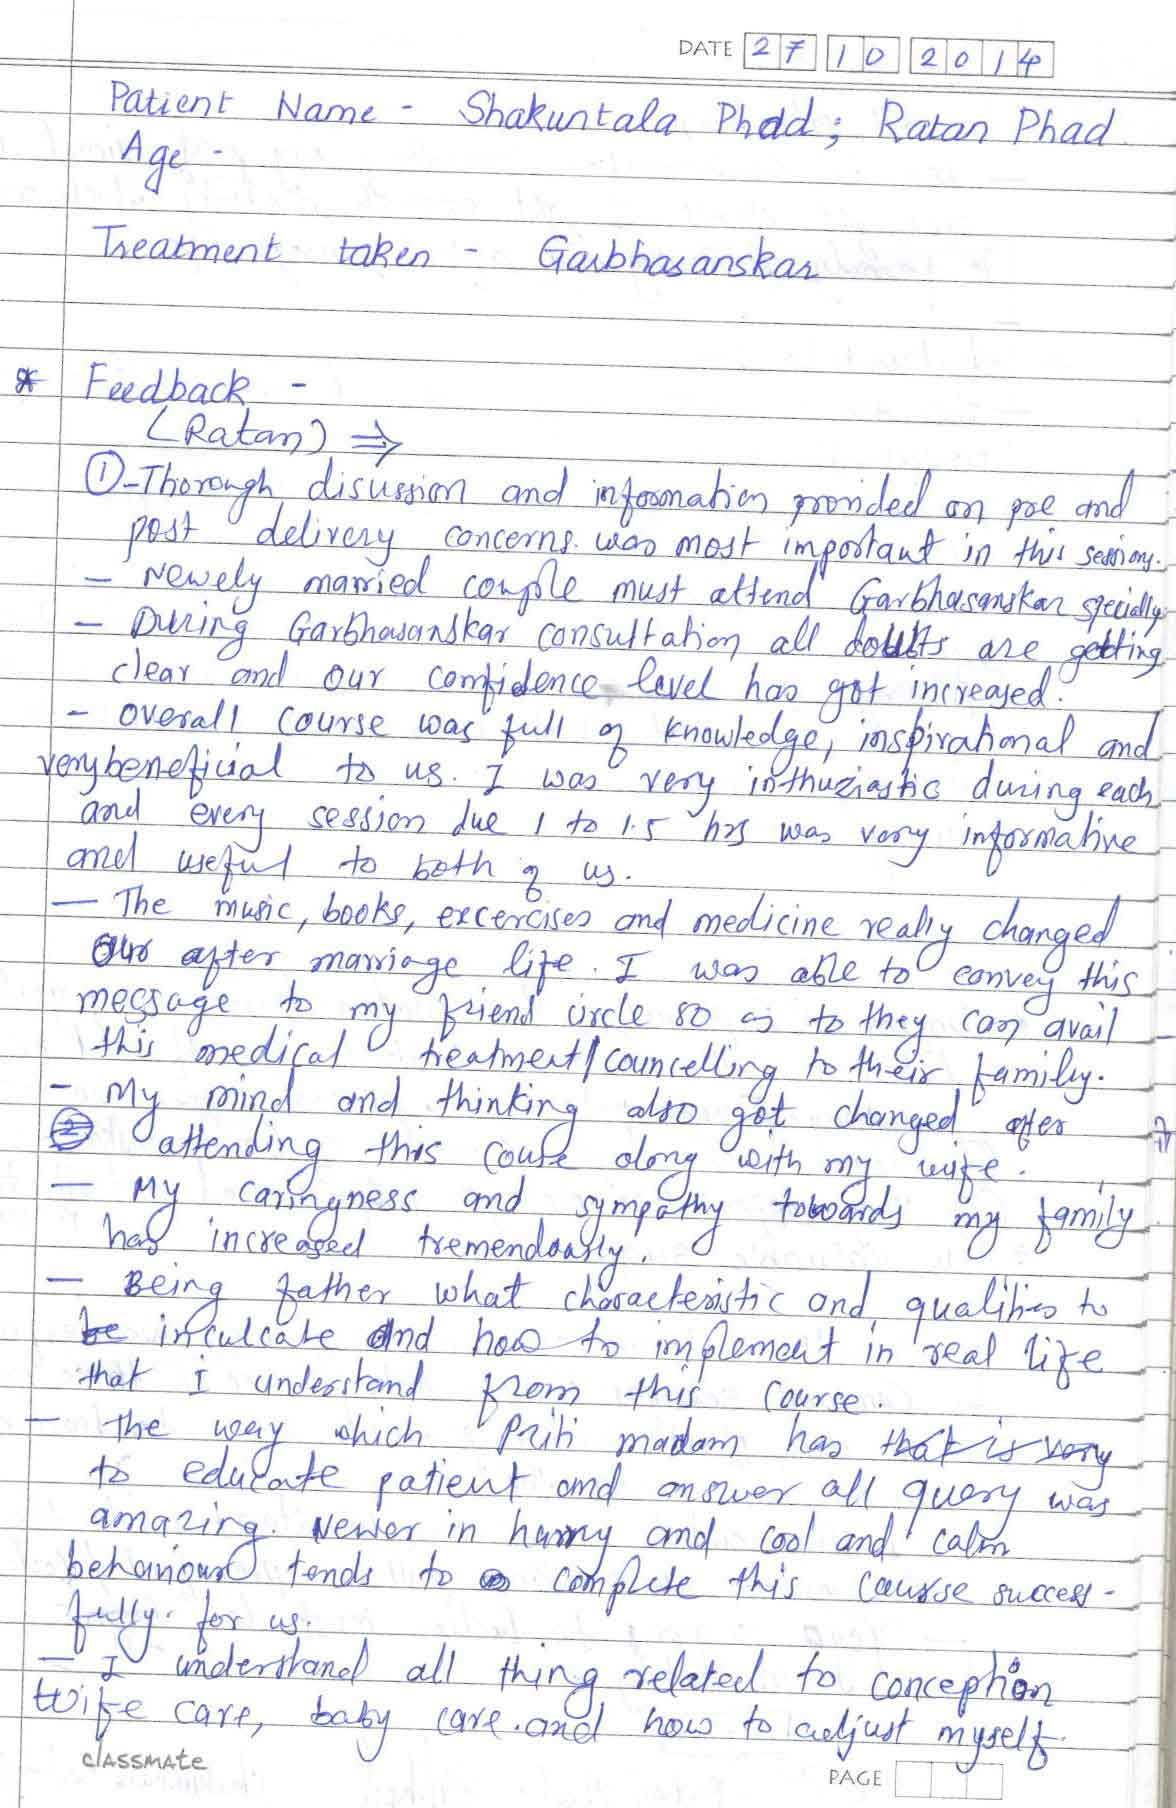 DATE 27 10 2014
Patient Name - Shakuntala Phad; Ratan Phad
Age -
Treatment taken - Garbhasanskar
* Feedback -
(Ratan) ⇒
① - Thorough disussion and information provided on pre and
post delivery concerns. was most important in this session.
- Newely married couple must attend Garbhasanskar specially
- During Garbhasanskar consultation all doubts are getting
clear and our confidence level has got increased.
- overall course was full of knowledge, inspirational and
very beneficial to us. I was very inthuziastic during each
and every session due 1 to 1.5 hrs was very informative
and useful to both of us.
- The music, books, excercises and medicine really changed
our after marriage life. I was able to convey this
message to my friend circle so as to they can avail
this medical treatment/councelling to their family.
- My mind and thinking also got changed after
attending this couse along with my wife.
- My caringness and sympathy towards my family
has increased tremendously.
- Being father what characteristic and qualities to
be inculcate and how to implement in real life
that I understand from this course.
- The way which Priti madam has that is very
to educate patient and answer all query was
amazing. Never in hurry and cool and calm
behaviour tends to complete this course success-
fully. for us.
- I understand all thing related to conception
wife care, baby care. and how to adjust myself.
classmate
PAGE